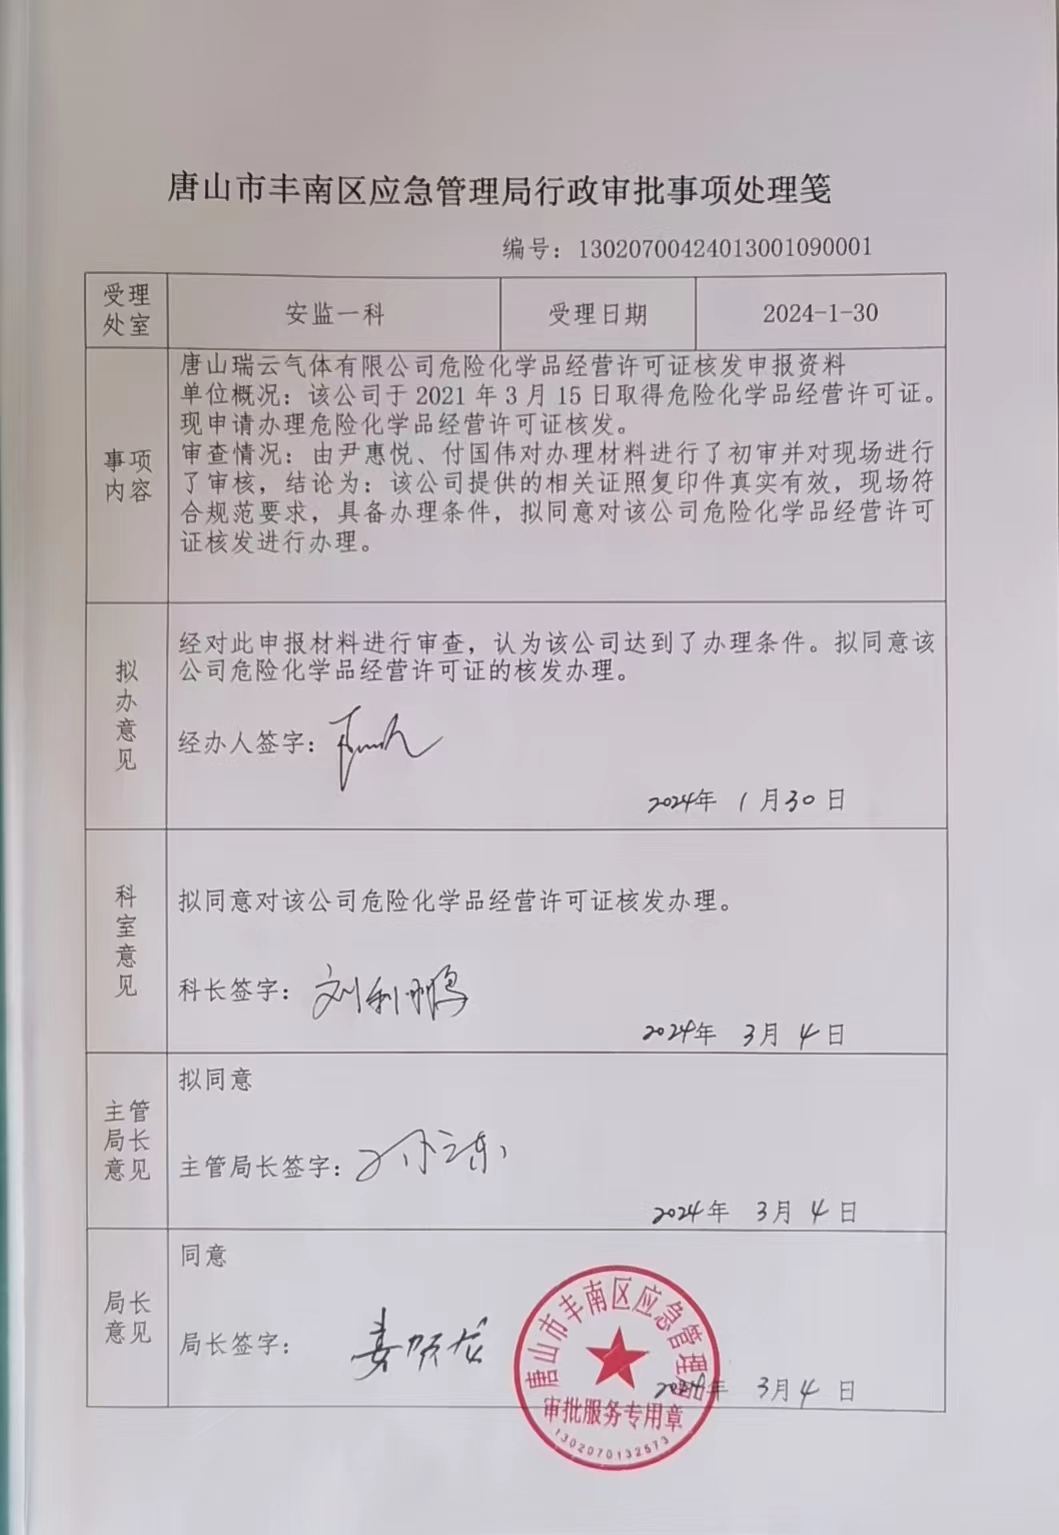 唐山市丰南区应急管理局行政审批事项处理笺
编号：13020700424013001090001
受理
处室
安监一科
受理日期
2024-1-30
事项
内容
唐山瑞云气体有限公司危险化学品经营许可证核发申报资料
单位概况：该公司于 2021 年 3 月 15 日取得危险化学品经营许可证。
现申请办理危险化学品经营许可证核发。
审查情况：由尹惠悦、付国伟对办理材料进行了初审并对现场进行
了审核，结论为：该公司提供的相关证照复印件真实有效，现场符
合规范要求，具备办理条件，拟同意对该公司危险化学品经营许可
证核发进行办理。
拟
办
意
见
经对此申报材料进行审查，认为该公司达到了办理条件。拟同意该
公司危险化学品经营许可证的核发办理。
经办人签字：
2024年 1月30日
科
室
意
见
拟同意对该公司危险化学品经营许可证核发办理。
科长签字：刘利鹏
2024年 3月 4日
主管
局长
意见
拟同意
主管局长签字：
2024年 3月 4日
局长
意见
同意
局长签字：
2024年 3月4日
唐山市丰南区应急管理局
审批服务专用章
1302070132573